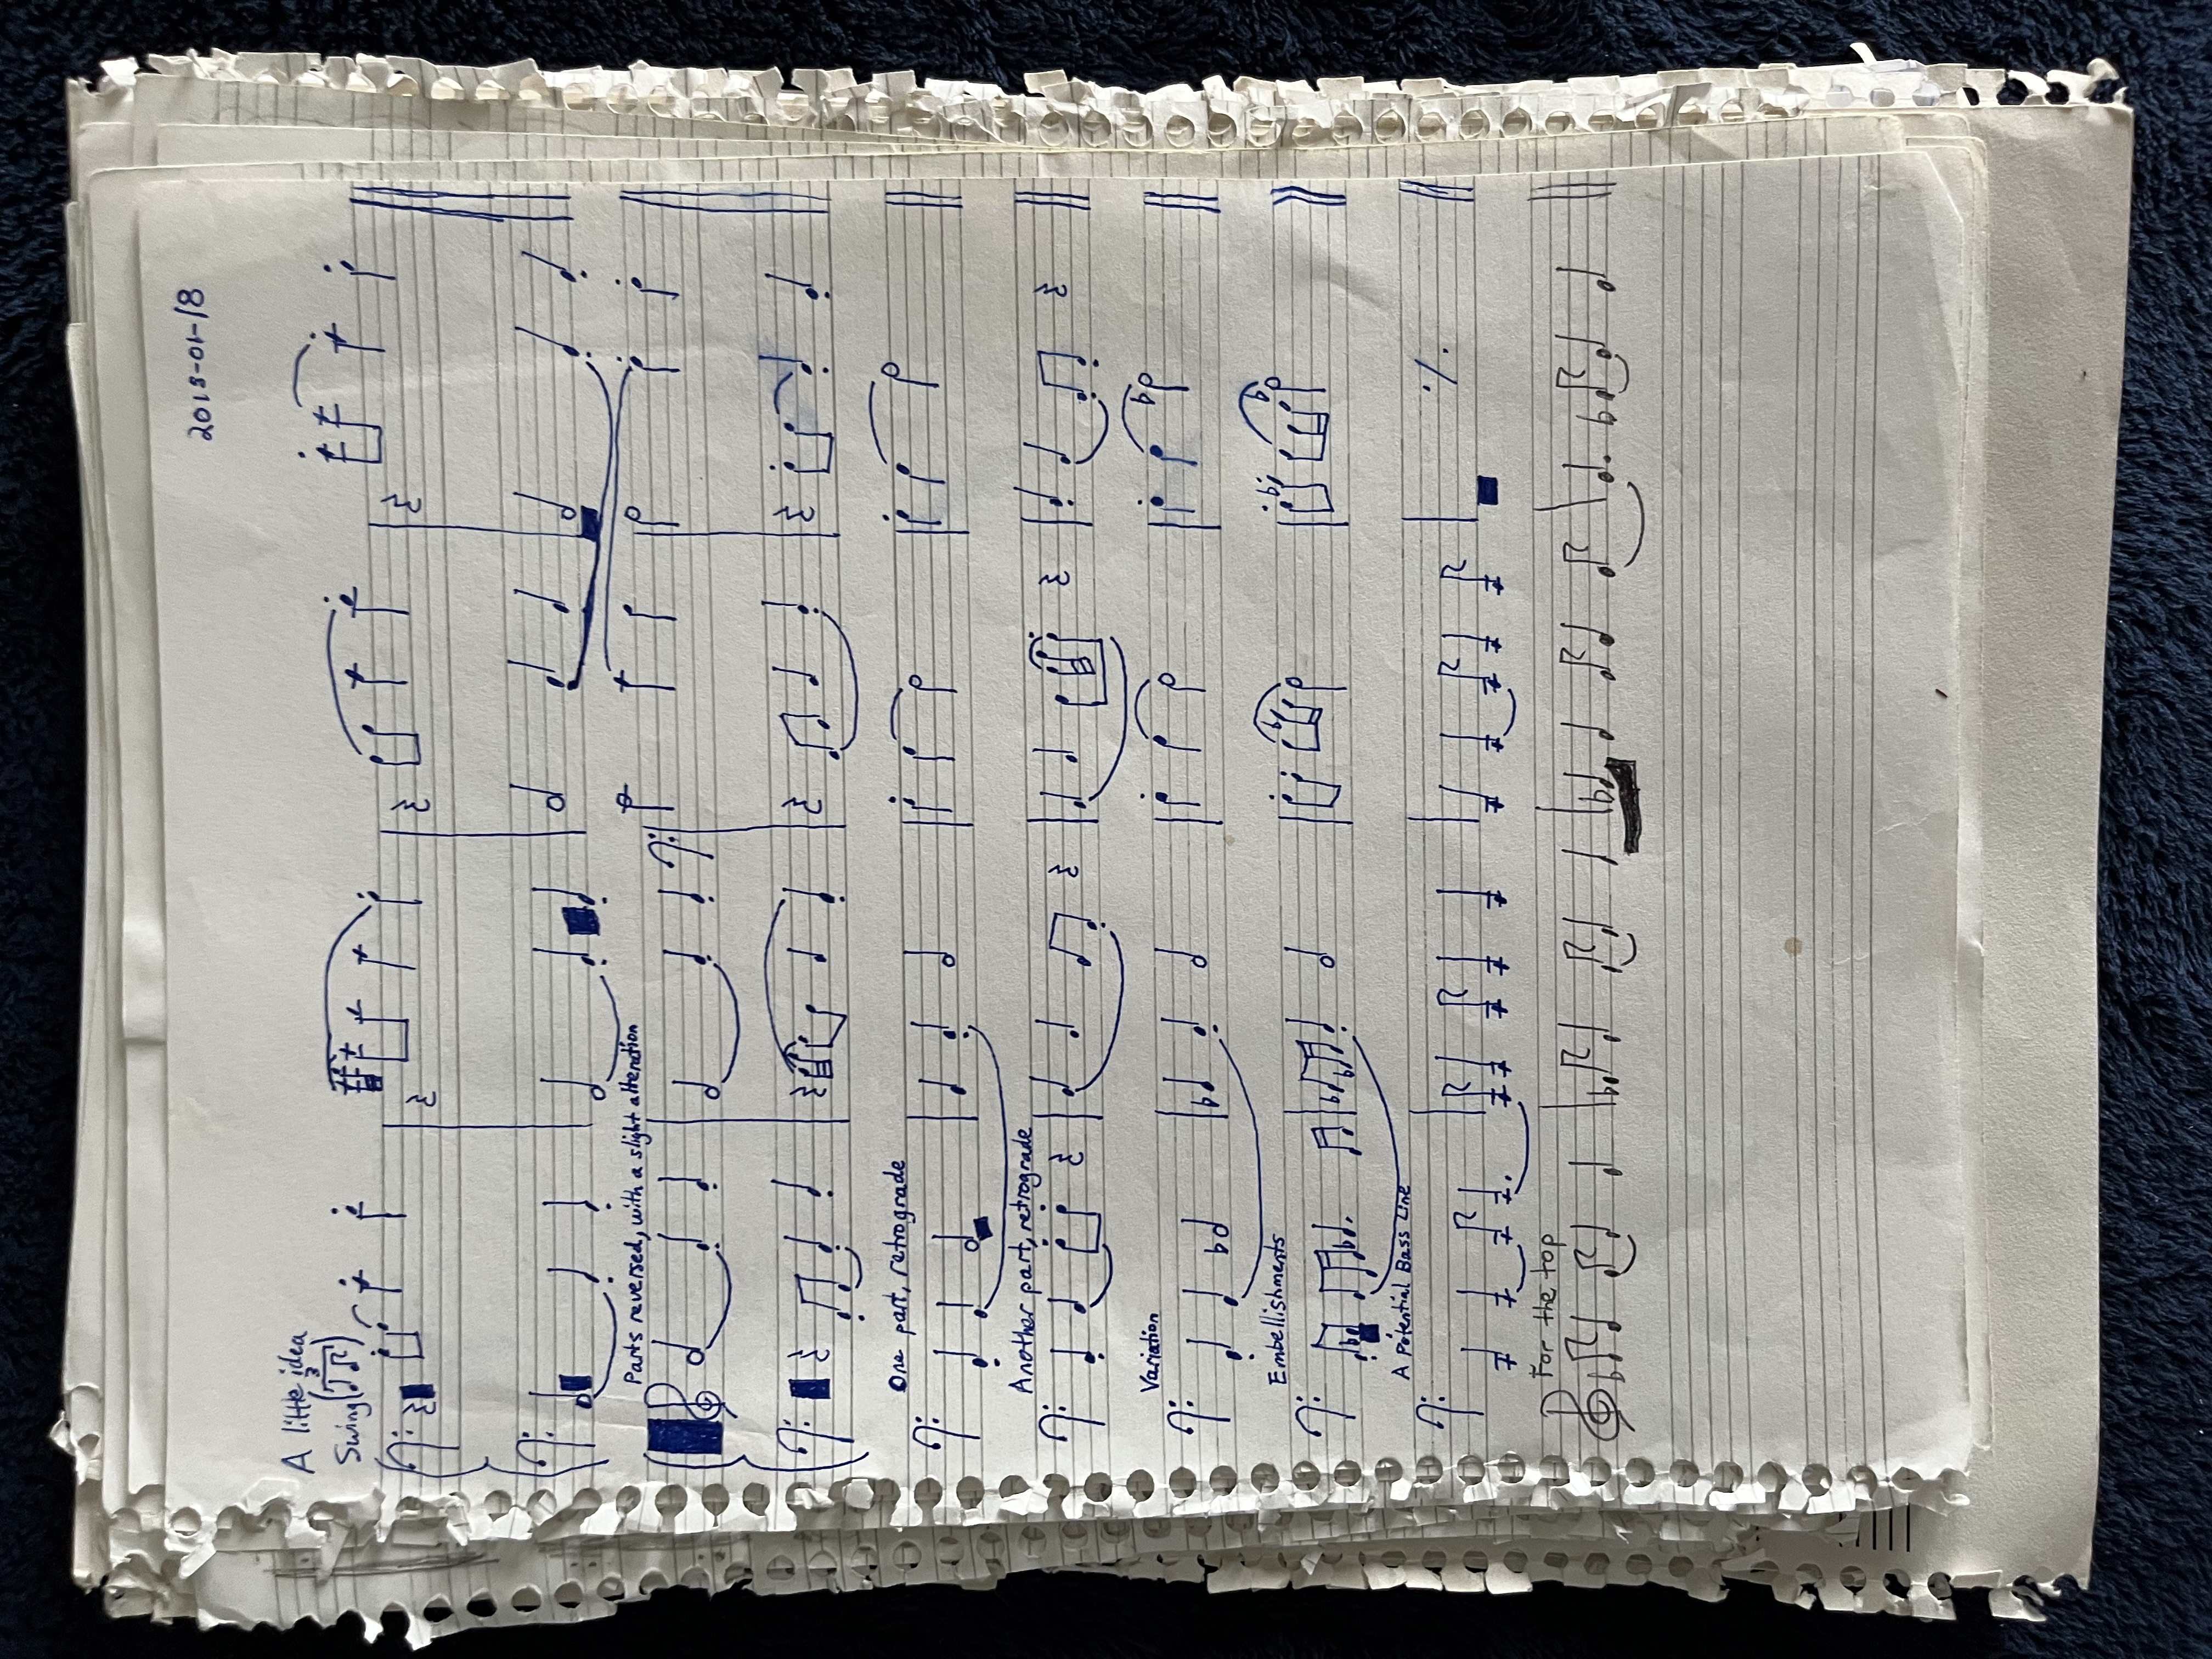 2018-01-18
A little idea
Swing
3
Parts reversed, with a slight alteration
One part, retrograde
Another part, retrograde
Variation
Embellishments
A Potential Bass Line
For the top